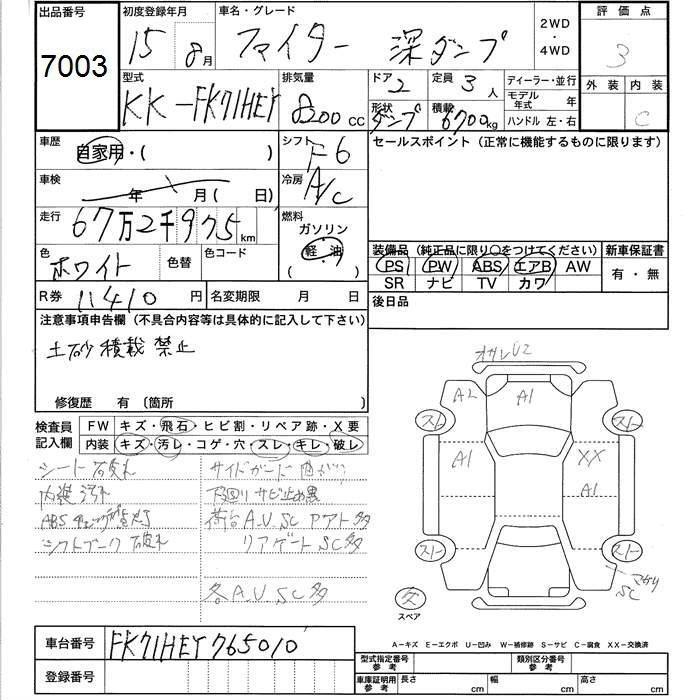 出品番号 初度登録年月 車名・グレード 2WD・4WD 評価点
7003 15 8月 ファイター 深ダンプ 3
型式 排気量 ドア 2 定員 3人 ディーラー・並行 外装 内装
KK-FK71HEY 8200cc 形状 ダンプ 積載 6700kg モデル年式 年 ハンドル 左・右 C
車歴 自家用・( ) シフト F6 セールスポイント（正常に機能するものに限ります）
車検 年 月( 日) 冷房 A/C
走行 67万2千975km 燃料 ガソリン 軽・油
色 ホワイト 色替 色コード
装備品（純正品に限り○をつけてください） 新車保証書
PS PW ABS エアB AW 有・無
SR ナビ TV カワ
R券 11410円 名変期限 月 日 後日品
注意事項申告欄（不具合内容等は具体的に記入して下さい）
土砂 積載 禁止
修復歴 有（箇所 ）
検査員記入欄 FW キズ・飛石・ヒビ割・リペア跡・X要
内装 キズ・汚レ・コゲ・穴・スレ・キレ・破レ
シート 破れ サイドガード 曲がり
内装 汚れ 下回り サビ止め黒
ABS チェック 点灯 荷台 A.U.SC アト多
シフトブーツ 破れ リアゲート SC多
各A.U.SC多
A2 A1
スト スト
A1 XX
A1
スト スト
SC
スペア
車台番号 FK71HEY765010
登録番号
A－キズ E－エクボ U－凹み W－補修跡 S－サビ C－腐食 XX－交換済
型式指定番号参考 類別区分番号参考
車庫証明用参考 長さ cm 幅 cm 高さ cm